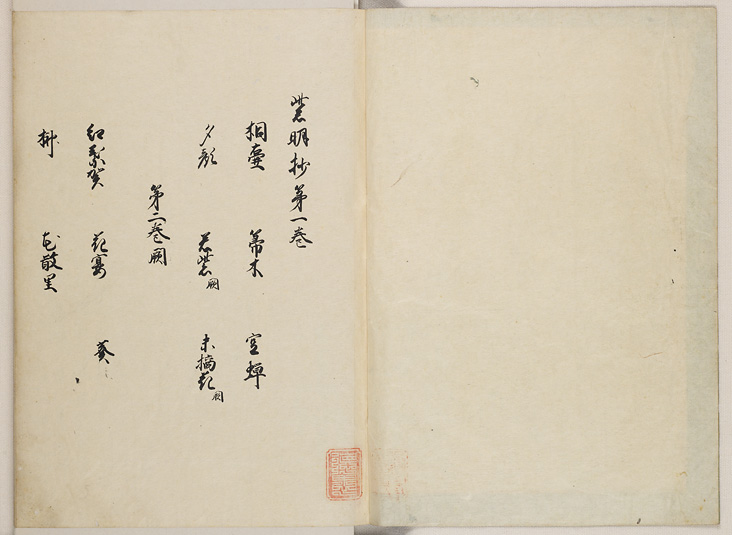 紫明抄第一巻
桐壷 箒木 空蝉
夕顔 若紫闕 末摘花闕
第二巻闕
紅葉賀 花宴 葵
榊 花散里